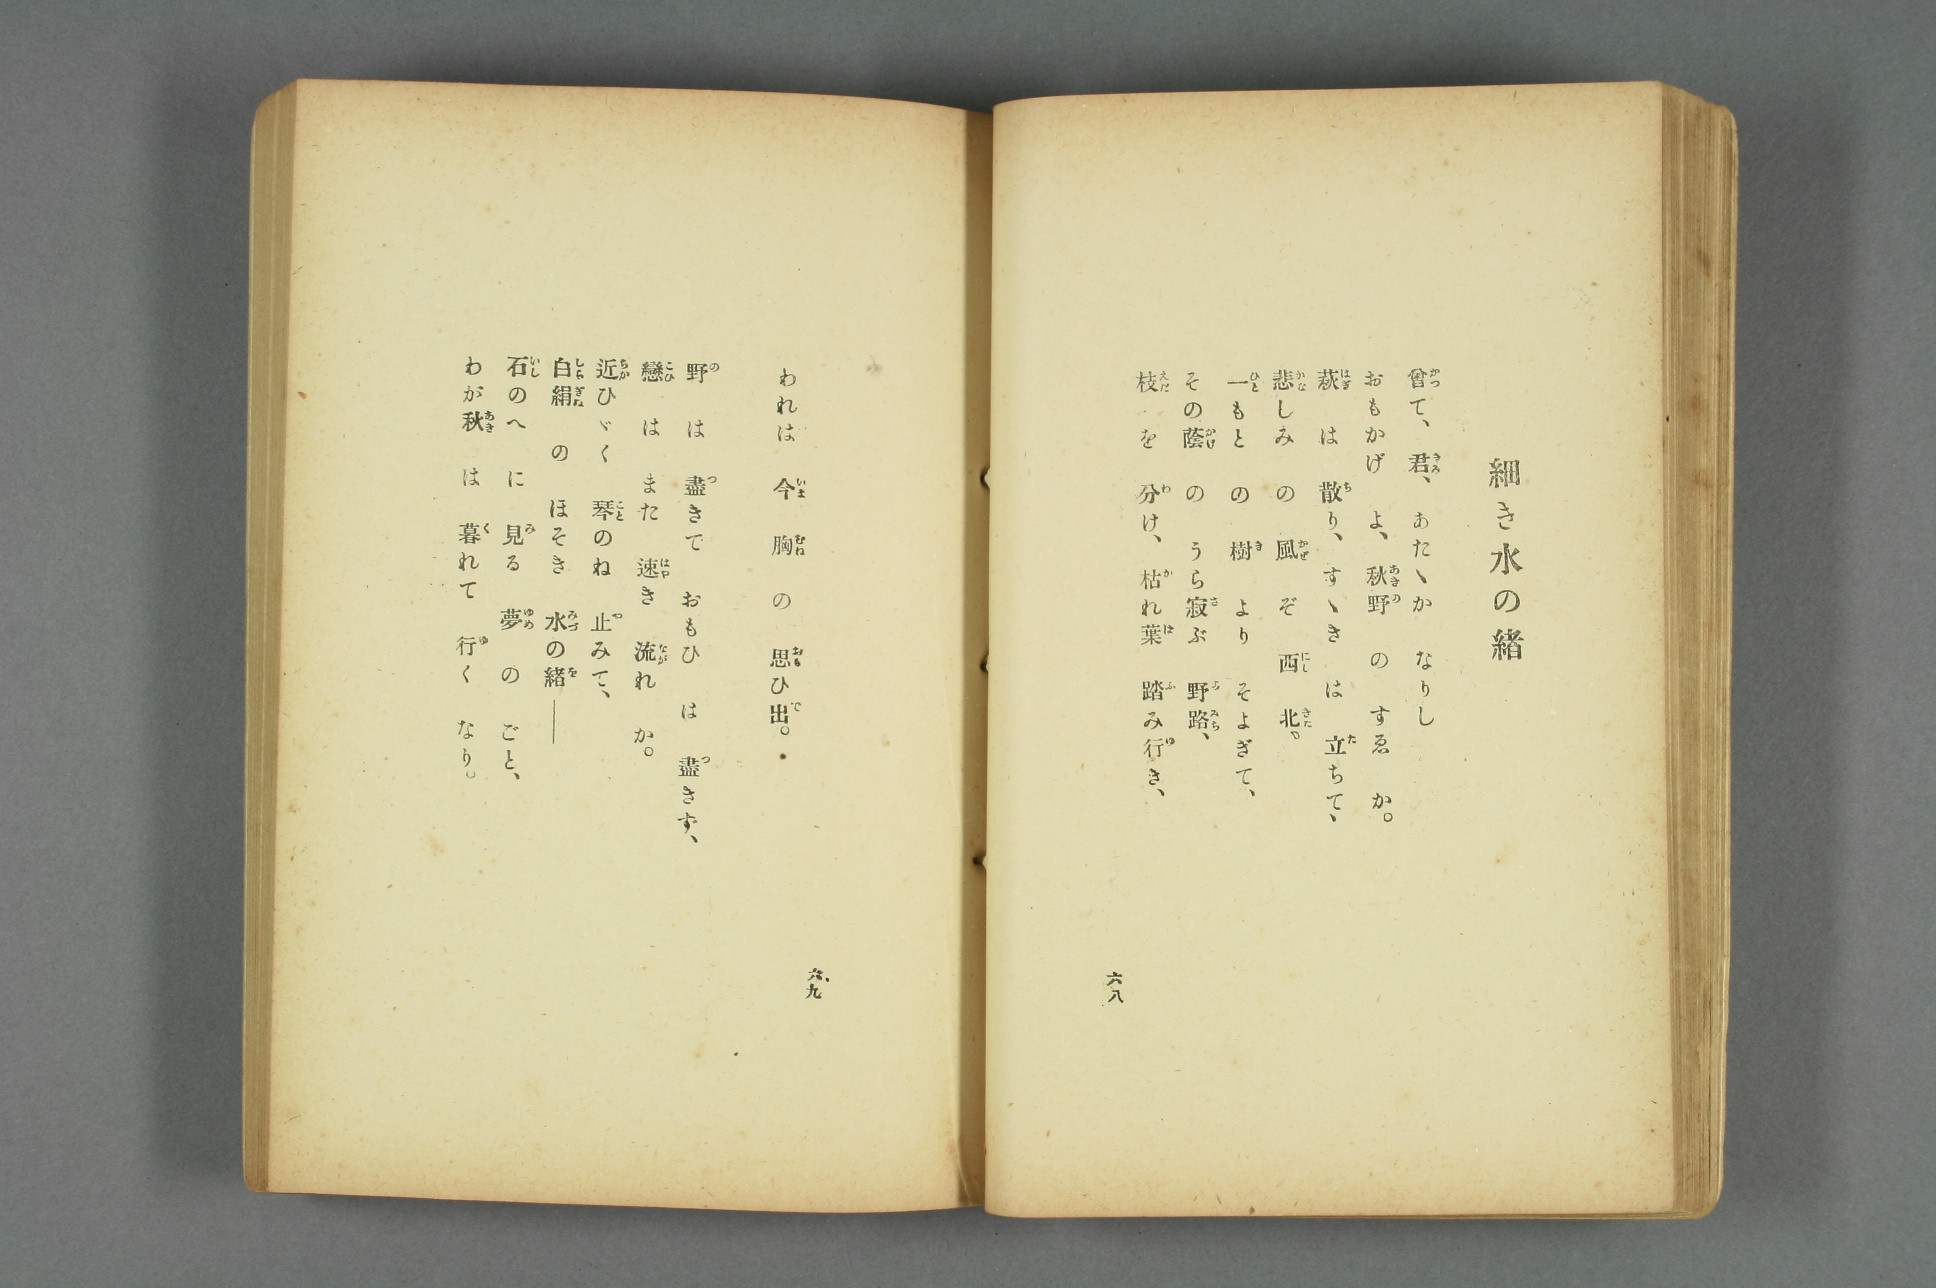 細き水の緒
曾て、君、あたゝか なりし
おもかげ よ、秋野 の すゑ か。
萩 は 散り、すゝき は 立ちて、
悲しみ の 風 ぞ 西 北。
一もと の 樹 より そよぎて、
その蔭 の うら寂ぶ 野路、
枝 を 分け、枯れ葉 踏み行き、
六八
われは 今 胸 の 思ひ出。
野 は 盡きて おもひ は 盡きず、
戀 は また 速き 流れ か。
近ひゞく 琴のね 止みて、
白絹 の ほそき 水の緒――
石のへ に 見る 夢 の ごと、
わが秋 は 暮れて 行く なり。
六九